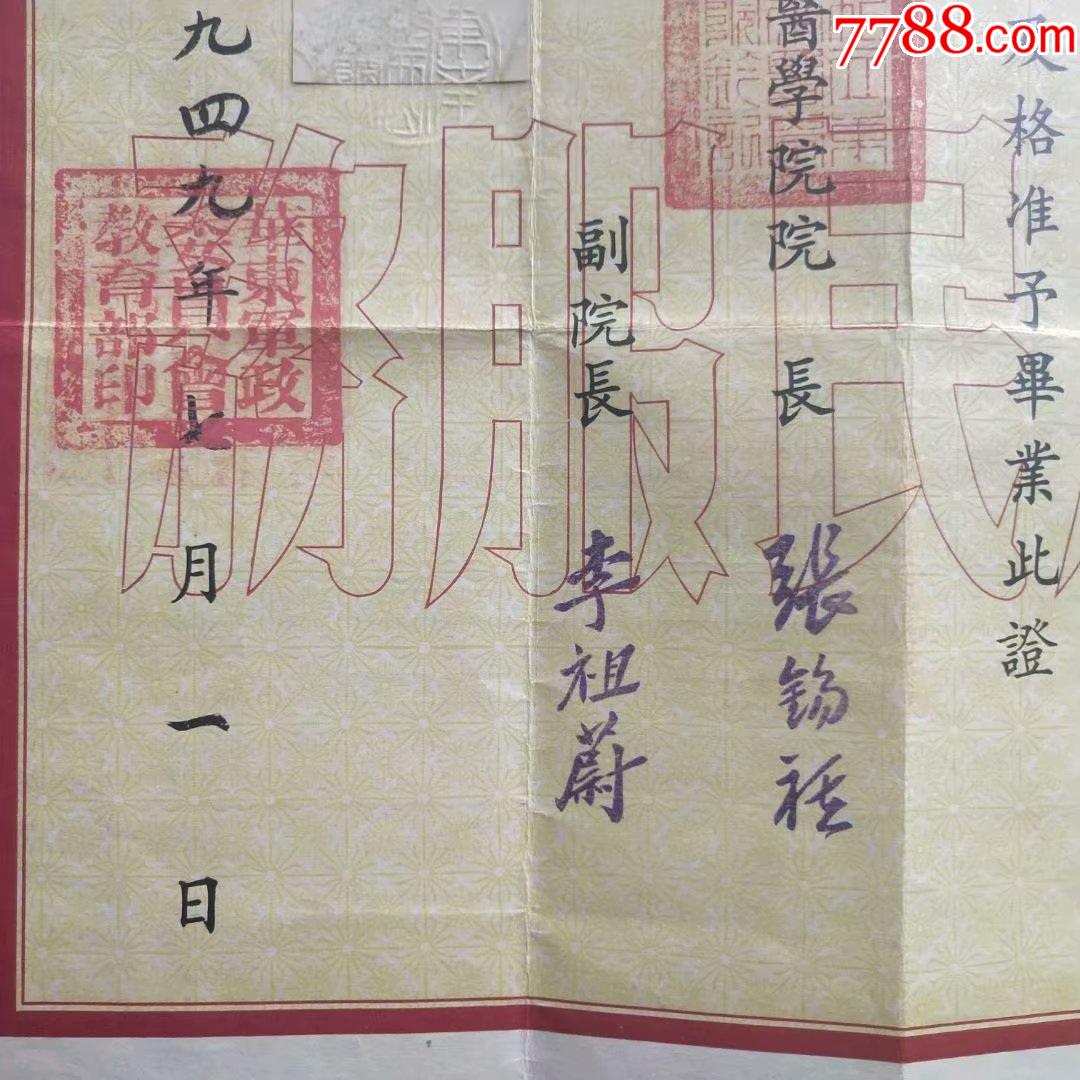 7788.com
及格准予畢業此證
醫學院院長 張錫祺
副院長 李祖蔚
九四九年七月一日
華東軍政
委員會
教育部印
民服務